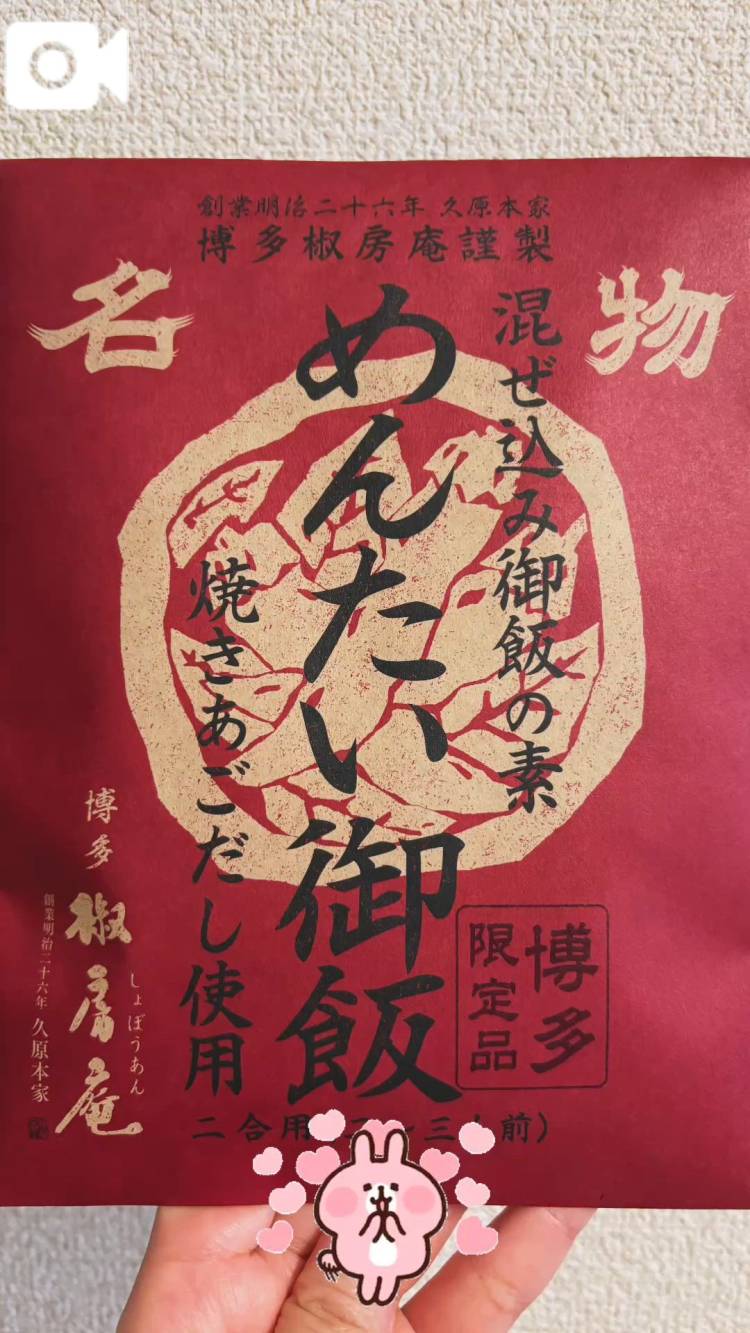 創業明治二十六年 久原本家
博多椒房庵謹製
名物
混ぜ込み御飯の素
めんたい御飯
焼きあごだし使用
博多
限定品
博多
椒房庵
しょぼうあん
創業明治二十六年 久原本家
二合用
三
前）